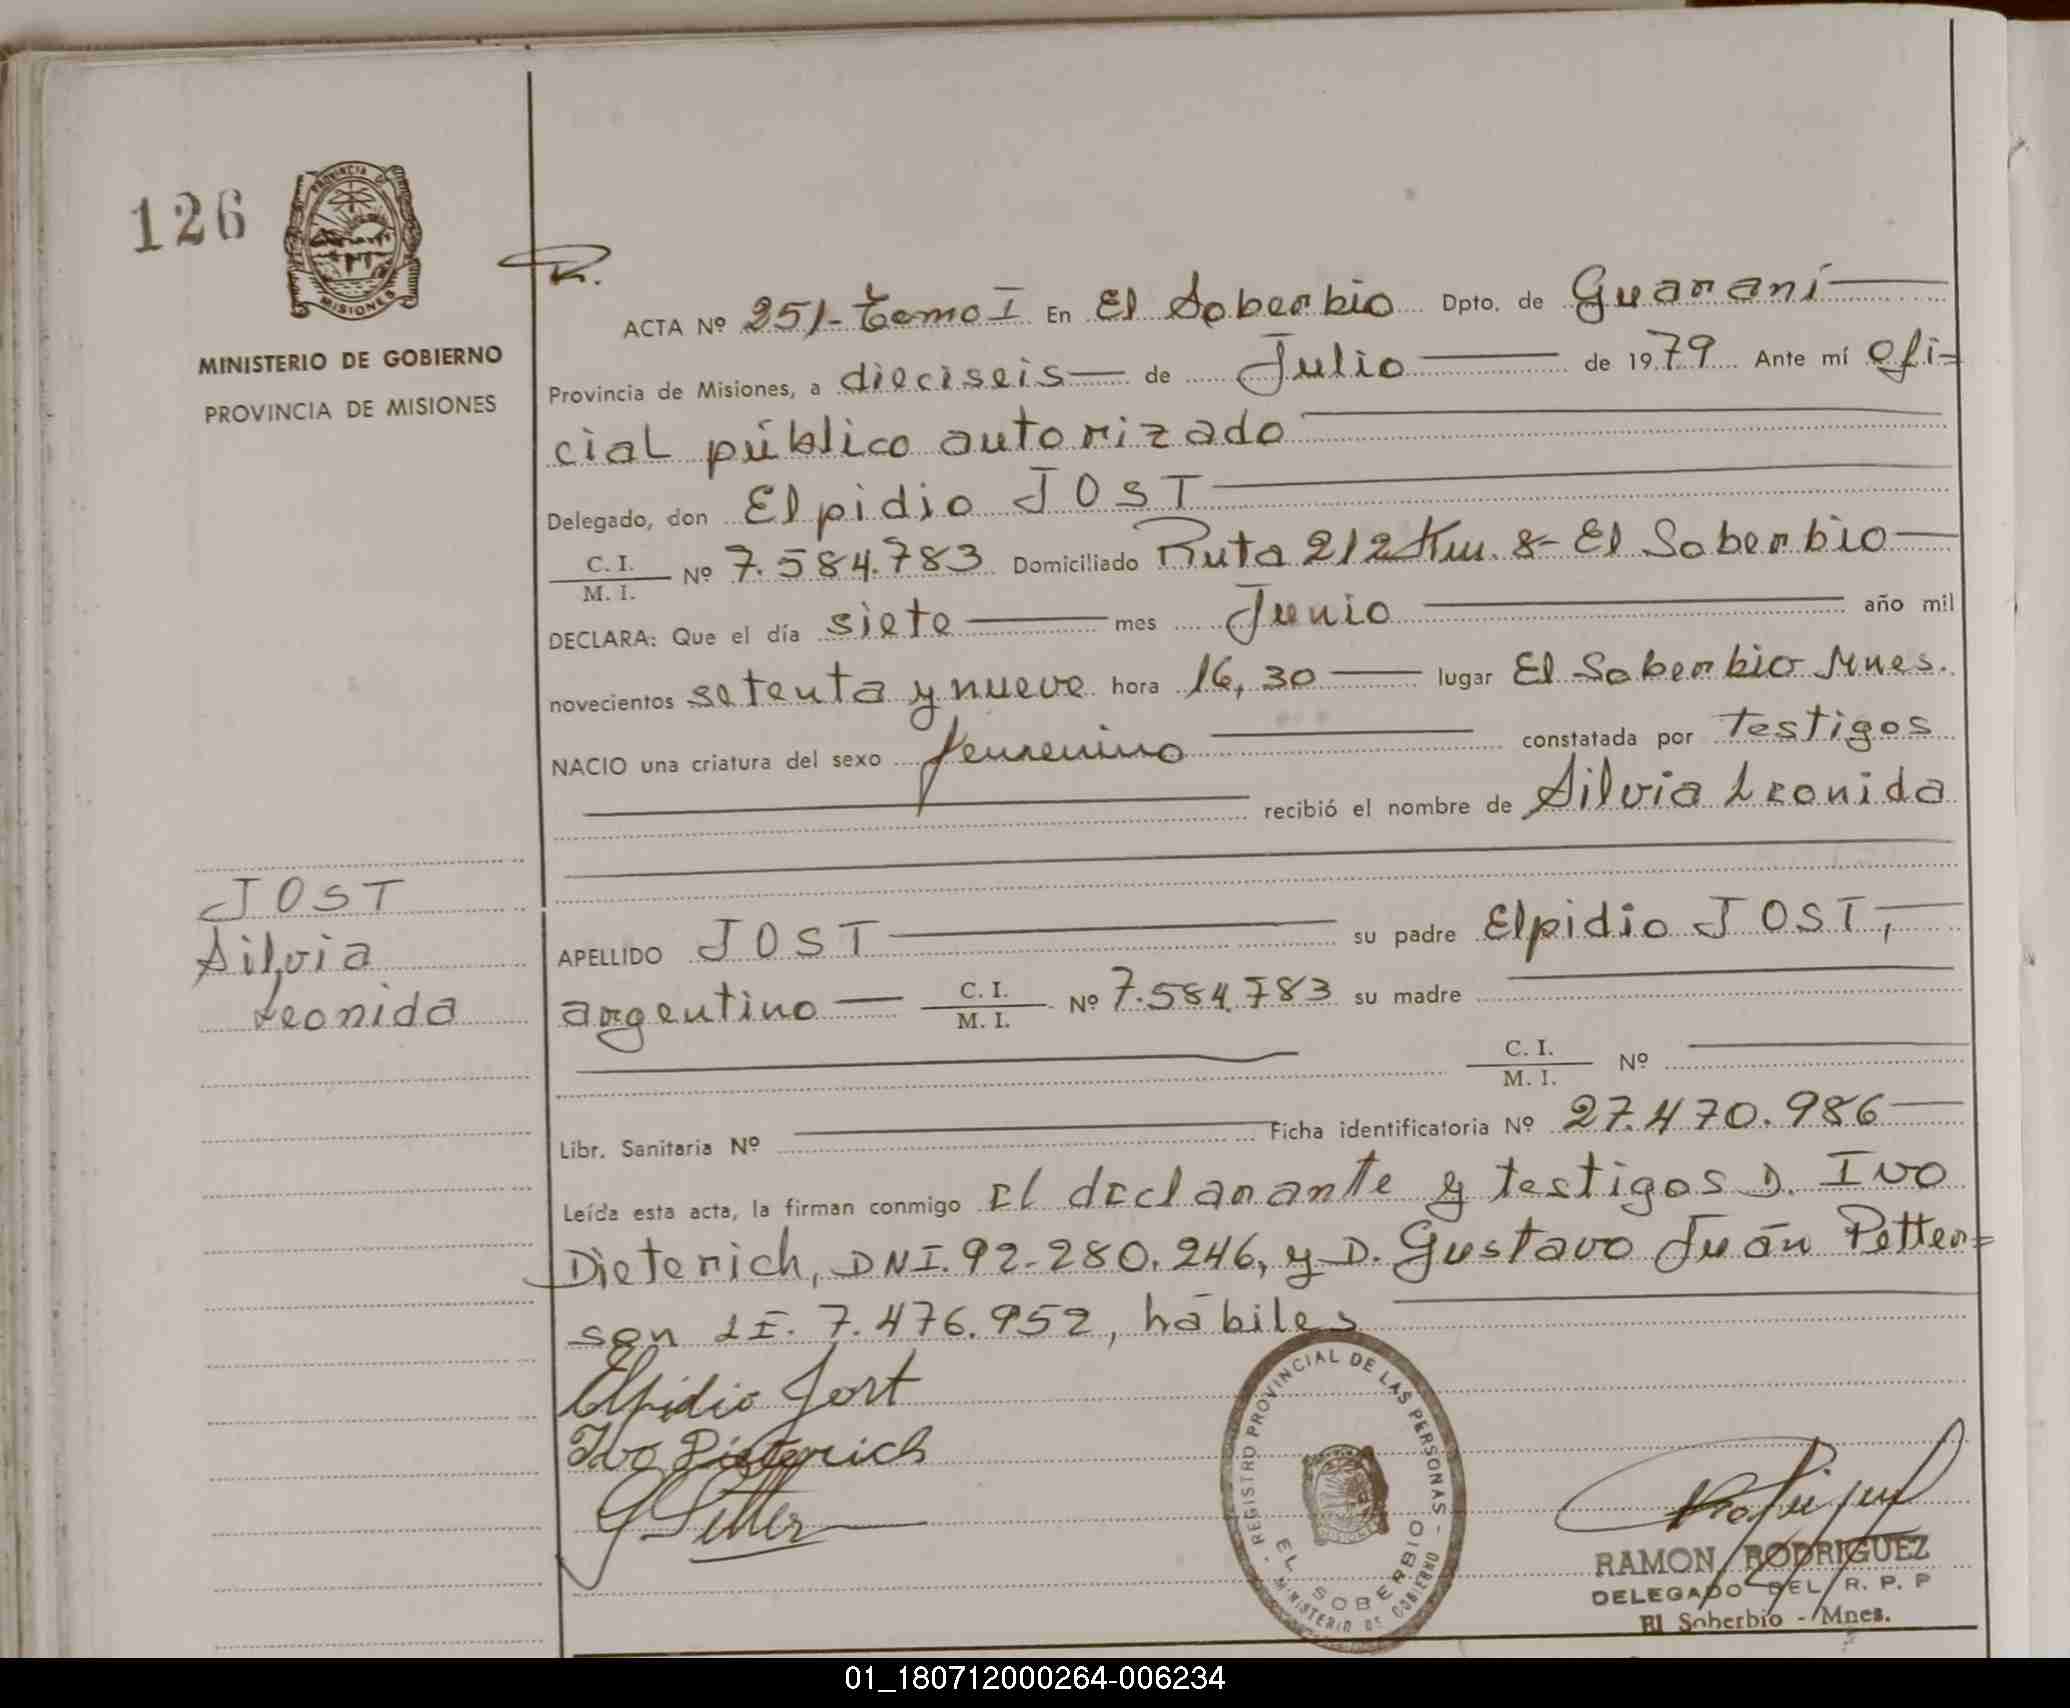 126
PROVINCIA DE
MISIONES
MINISTERIO DE GOBIERNO
PROVINCIA DE MISIONES
ACTA Nº 251- tomo I En El Soberbio Dpto. de Guaraní
Provincia de Misiones, a dieciseis de Julio de 1979 Ante mí ofi-
cial público autorizado
Delegado, don Elpidio JOST
C. I. / M. I. Nº 7.584.783 Domiciliado Ruta 212 Km. 8- El Soberbio
DECLARA: Que el día siete mes Junio año mil
novecientos setenta y nueve hora 16,30 lugar El Soberbio Mnes.
NACIO una criatura del sexo femenino constatada por testigos
recibió el nombre de Silvia Leonida
JOST
Silvia
Leonida
APELLIDO JOST su padre Elpidio JOST,
argentino C. I. / M. I. Nº 7.584.783 su madre
C. I. / M. I. Nº
Libr. Sanitaria Nº Ficha identificatoria Nº 27.470.986
Leída esta acta, la firman conmigo el declarante y testigos D. Ivo
Dieterich, DNI. 92.280.246, y D. Gustavo Juán Petter=
sen LE. 7.476.952, hábiles
Elpidio Jost
Ivo Dieterich
REGISTRO PROVINCIAL DE LAS PERSONAS - MINISTERIO DE GOBIERNO -
EL SOBERBIO
RAMON RODRIGUEZ
DELEGADO DEL R. P. P
El Soberbio - Mnes.
01_180712000264-006234